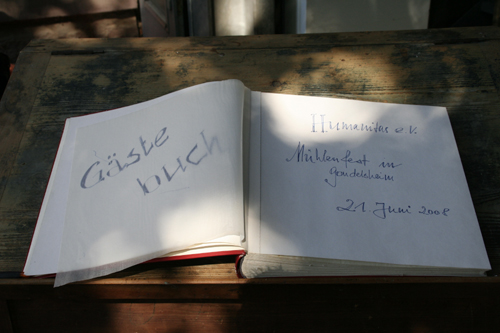 Gäste
buch
Humanitas e.V.
Mühlenfest in
Gondelsheim
21 Juni 2008